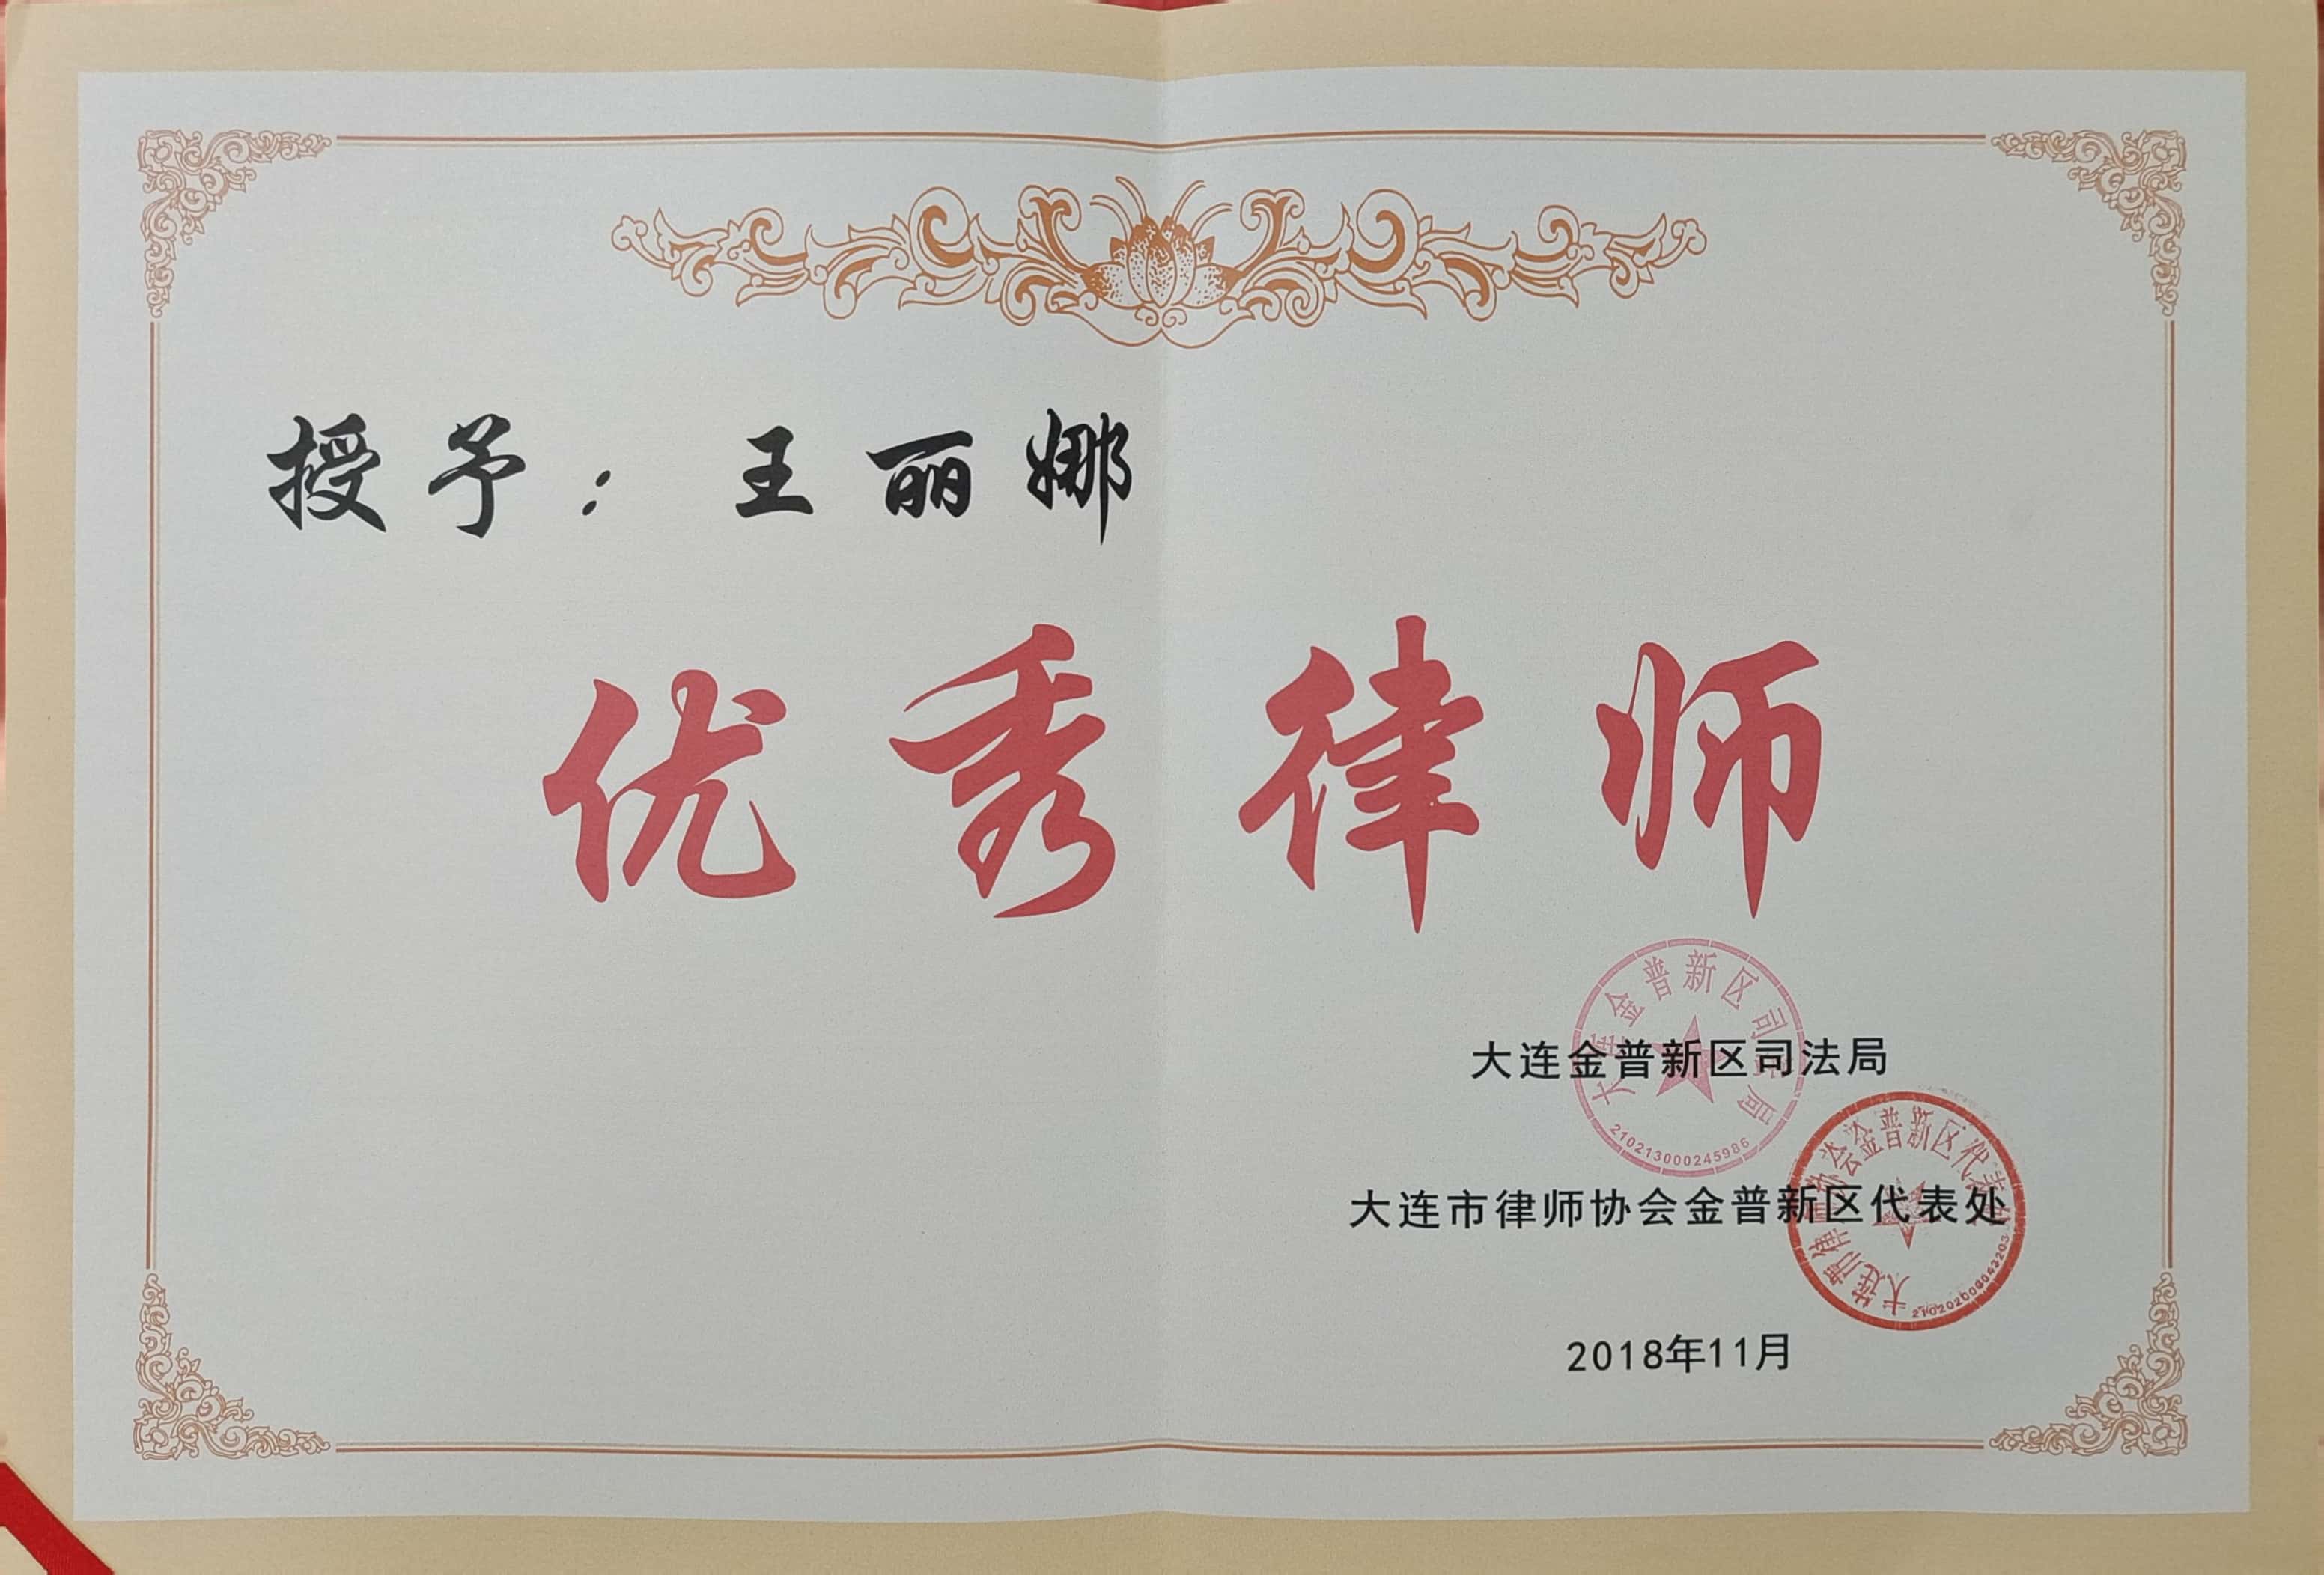 授予：王丽娜
优秀律师
大连金普新区司法局
大连金普新区司法局
210213000245986
大连市律师协会金普新区代表处
大连市律师协会金普新区代表处
2018年11月